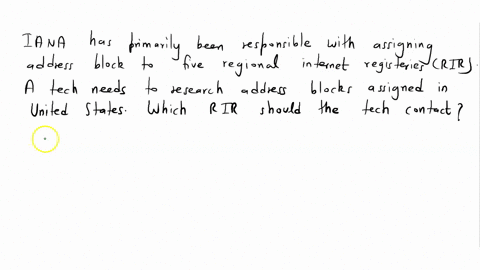 IANA has primarily been responsible with assigning
address block to five regional internet registeries (RIR).
A tech needs to research address blocks assigned in
United States. Which RIR should the tech contact?